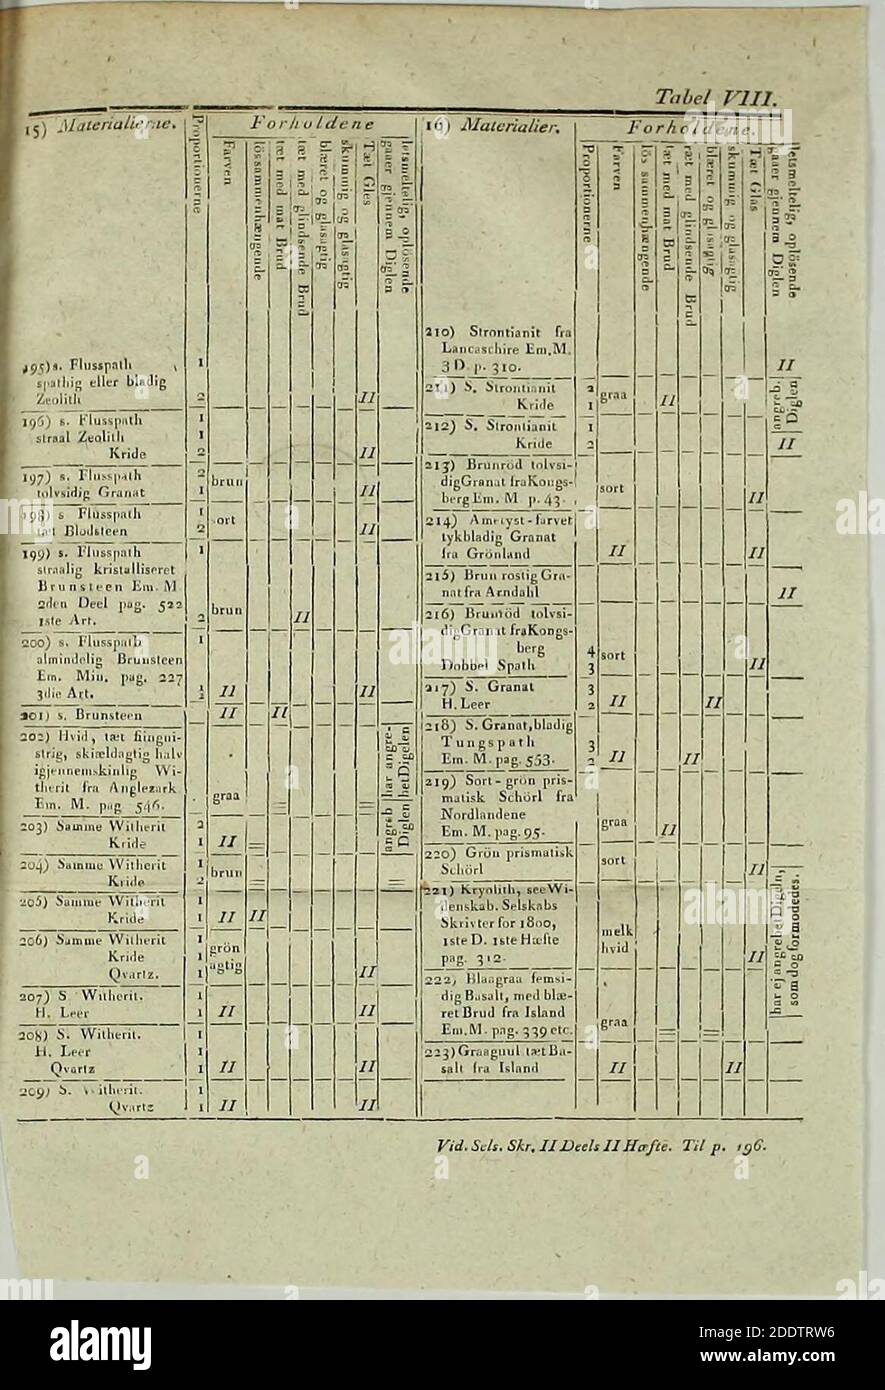 Tabel VIII.
15) Materialierne.
Proportionerne
Forholdene
Farven
lössammenhængende
tæt med mat Brud
tæt med glindsende Brud
blæret og glasagtig
skummig og glasagtig
Tæt Glas
letsmeltelig, oplösende
gaaer gjennem Diglen
195) s. Flusspath 1
spathig eller bladig
Zeolith 2 II
196) s. Flusspath 1
straal Zeolith 1
Kride 2 II
197) s. Flusspath 2 brun
tolvsidig Granat 1 II
198) s Flusspath 1 sort
tæt Blodsteen 2 II
199) s. Flusspath 1
straalig kristalliseret
Brunsteen Em. M
2den Deel pag. 522 brun
1ste Art. 2 II
200) s. Flusspath 1
almindelig Brunsteen
Em. Min. pag. 227
3die Art. II II
201) s. Brunsteen II II
202) Hvid, tæt
skiældagtig halv
igjennemskinlig Wi-
therit fra Anglezark graa =
Em. M. pag 546. =
har angre-
bet Digelen
203) Samme Witherit 2
Kride 1 II =
angreb
Diglen
204) Samme Witherit 1 brun
Kride 2 = =
205) Samme Witherit 1
Kride 1 II II
206) Samme Witherit 1 grön
Kride 1 agtig
Qvartz. 1 II
207) S Witherit. 1
H. Leer 1 II II
208) S. Witherit. 1
H. Leer 1
Qvartz 1 II II
209) S. Witherit. 1
Qvartz 1 II II
16) Materialier.
Proportionerne
Forholdene.
Farven
lös sammenhængende
tæt med mat Brud
tæt med glindsende Brud
blæret og glasagtig
skummig og glasagtig
Tæt Glas
letsmeltelig, oplösende
gaaer gjennem Diglen
210) Strontianit fra
Lancaschire Em. M.
3 D. p. 310. II
211) S. Strontianit 2 graa
Kride 1 II
angreb.
Diglen
212) S. Strontianit 1
Kride 2 II
213) Brunröd tolvsi-
dig Granat fra Kongs- sort
berg Em. M p. 43. II
214) Ametyst-farvet
tykbladig Granat
fra Grönland II II
215) Brun rostig Gra-
nat fra Arndahl II
216) Brunröd tolvsi-
dig Granat fra Kongs-
berg 4 sort
Dobbel Spath 3 II
217) S. Granat 3
H. Leer 2 II II
218) S. Granat, bladig
Tungspath 3
Em. M. pag. 553. 2 II II
219) Sort-grön pris-
matisk Schörl fra
Nordlandene graa
Em. M. pag. 95. II
220) Grön prismatisk sort
Schörl II
221) Kryolith, see Wi-
denskab. Selskabs
Skrivter for 1800, melk
1ste D. 1ste Hæfte hvid
pag. 312. II
har ej angrebet Digeln,
som dog formodedes.
222) Blaagraa femsi-
dig Basalt, med blæ-
ret Brud fra Island graa
Em. M. pag. 339 etc. = =
223) Graaguul tæt Ba-
salt fra Island II II
Vid. Sels. Skr. II Deels II Hæfte. Til p. 196.
alamy
Image ID: 2DDTRW6
www.alamy.com